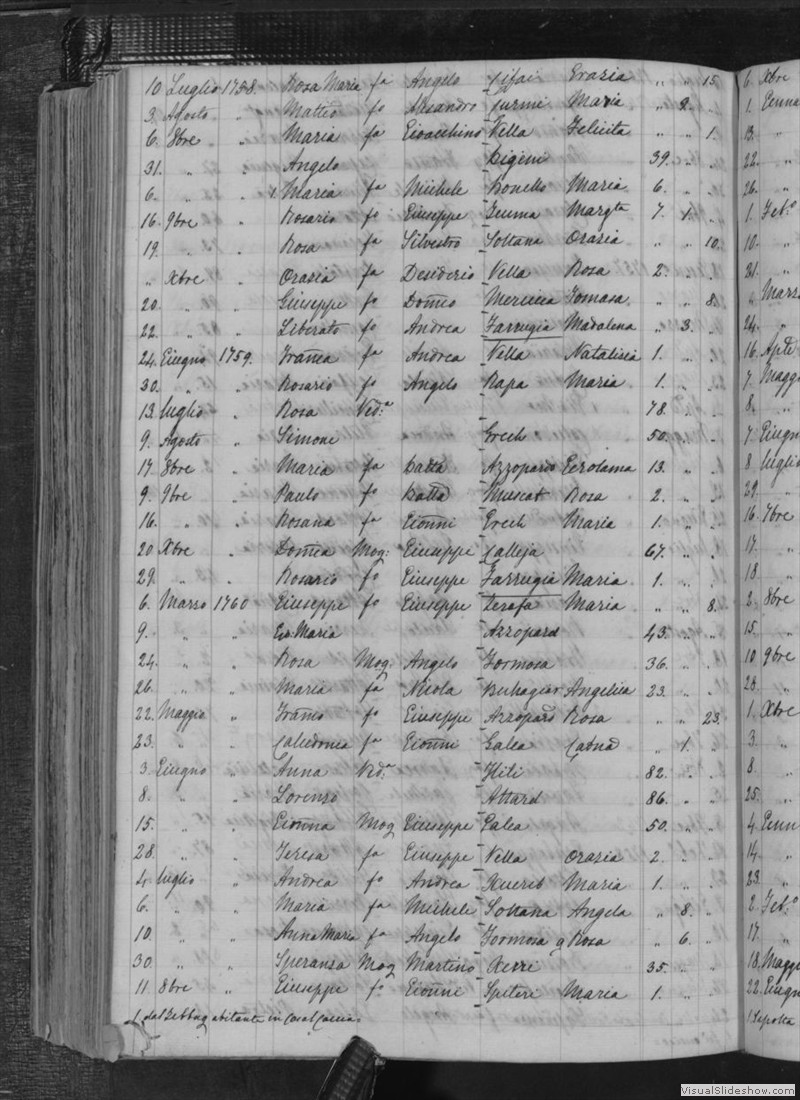 10 Luglio 1758. Rosa Maria fa Angelo Cifai Orazia " " 15
3. Agosto " Matteo fo Alesandro Curmi Maria " 2. "
6. 8bre " Maria fa Gioacchino Vella Felicita " " 1.
31. " " Angelo Bigeni 39. " "
6. " " 1. Maria fa Michele Bonello Maria 6. " "
16. 9bre " Rosario fo Giuseppe Gumma Margta 7. 1. "
19. " " Rosa fa Silvestro Soltana Orazia " " 10.
" Xbre " Orazia fa Desiderio Vella Rosa 2. " "
20. " " Giuseppe fo Domco Tomasa " " 8.
22. " " Liberato fo Andrea Farrugia Madalena " 3. "
24. Giugno 1759. Franca fa Andrea Vella Natalizia 1. " "
30. " " Rosario fo Angelo Rapa Maria 1. " "
13. Luglio " Rosa Ved.a 78. " "
9. Agosto " Simone Grech 50. " "
17. 8bre " Maria fa Batta Azzopardo Gerolama 13. " "
9. 9bre " Paulo fo Batta Muscat Rosa 2. " "
16. " " Rosana fa Gionni Grech Maria 1. " "
20 Xbre " Domca Mog: Giuseppe Calleja 67. " "
29. " " Rosario fo Giuseppe Farrugia Maria 1. " "
6. Marzo 1760 Giuseppe fo Giuseppe Zerafa Maria " " 8.
9. " " Maria Azzopard 43. " "
24. " " Rosa Mog Angelo Formosa 36. " "
26. " " Maria fa Nicola Buhagiar Angelica 23. " "
22. Maggio " Franco fo Giuseppe Azzopardo Rosa " " 23.
23. " " Calcedonia fa Gionni Galea " 1. "
3. Giugno " Anna Ved.a Fliti 82. " "
8. " " Lorenzo Attard 86. " "
15. " " Gionna Mog Giuseppe Galea 50. " "
28. " " Teresa fa Giuseppe Vella Orazia 2. " "
4. Luglio " Andrea fo Andrea Xuereb Maria 1. " "
6. " " Maria fa Michele Soltana Angela " 8. "
10. " " Anna Maria fa Angelo Formosa q Rosa " 6. "
30. " " Speranza Mog Martino Xerri 35. " "
11. 8bre " Giuseppe fo Gionni Spiteri Maria 1. " "
1. del Zebbug abitante in Casal
6. Xbre
1. Genna
13. "
22. "
26. "
1. Feb.o
10. "
21. "
" Marzo
24. "
16. Aple
7. Maggio
8. "
7. Giugno
8. Luglio
29. "
16. 7bre
17. "
18. "
2. 8bre
15. "
10 9bre
28. "
1. Xbre
3. "
8. "
25. "
4. Genn
14. "
23. "
2. Feb.o
17. "
18. Maggio
22. Giugno
1. Sepolta
VisualSlideshow.com